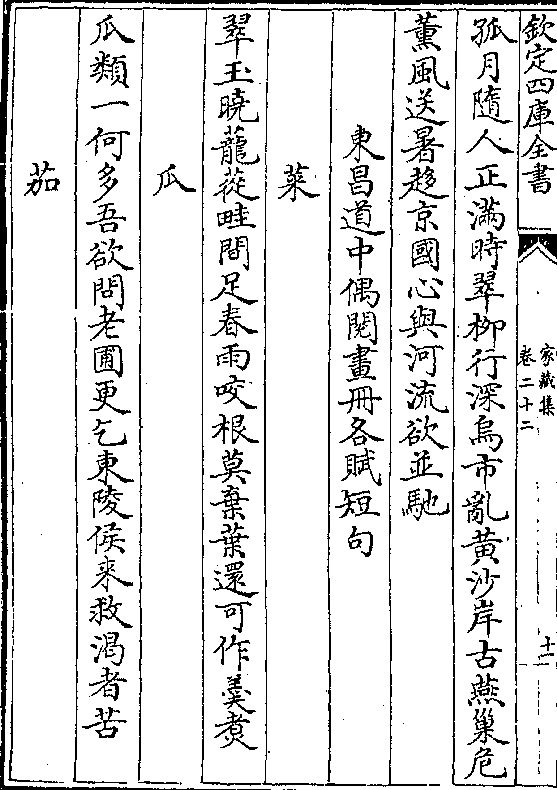 欽定四庫全書
家藏集
卷二十二
十一
孤月隨人正滿時翠柳行深烏市亂黄沙岸古燕巢危
薫風送暑趍京國心與河流欲並馳
東昌道中偶閱畫冊各賦短句
菜
翠玉曉蘢蓯畦間足春雨咬根莫棄葉還可作羹煑
瓜
瓜類一何多吾欲問老圃更乞東陵侯来救渴者苦
茄